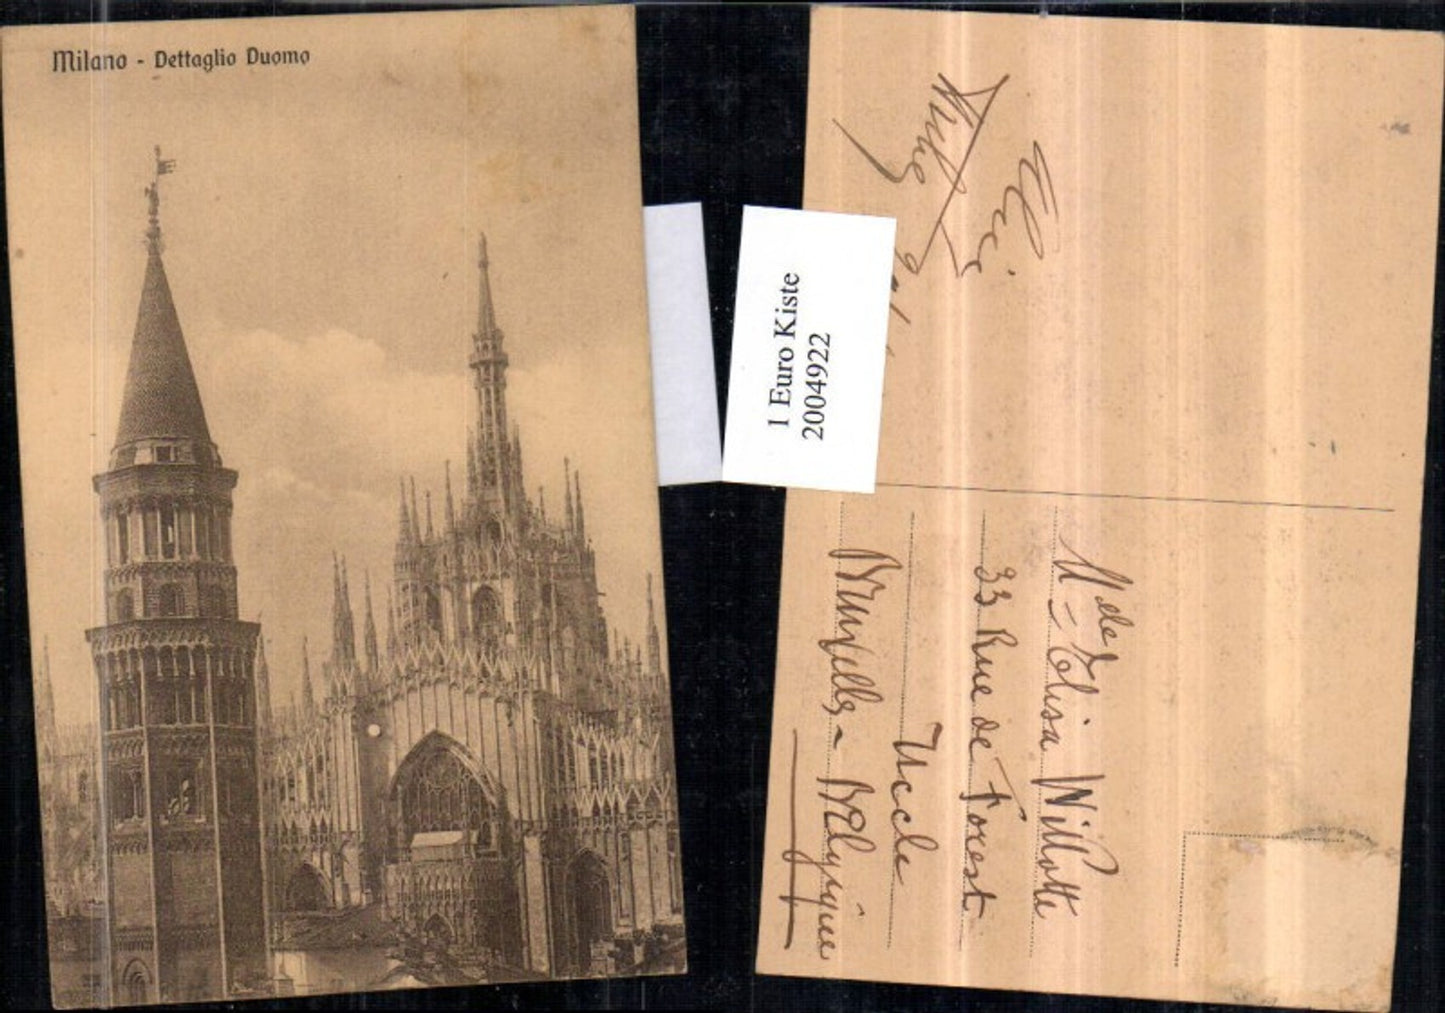 Milano - Dettaglio Duomo
1 Euro Kiste
2004922
Mdelle Elisa Willotte
33 Rue de Forest
Uccle
Bruxelles - Belgique